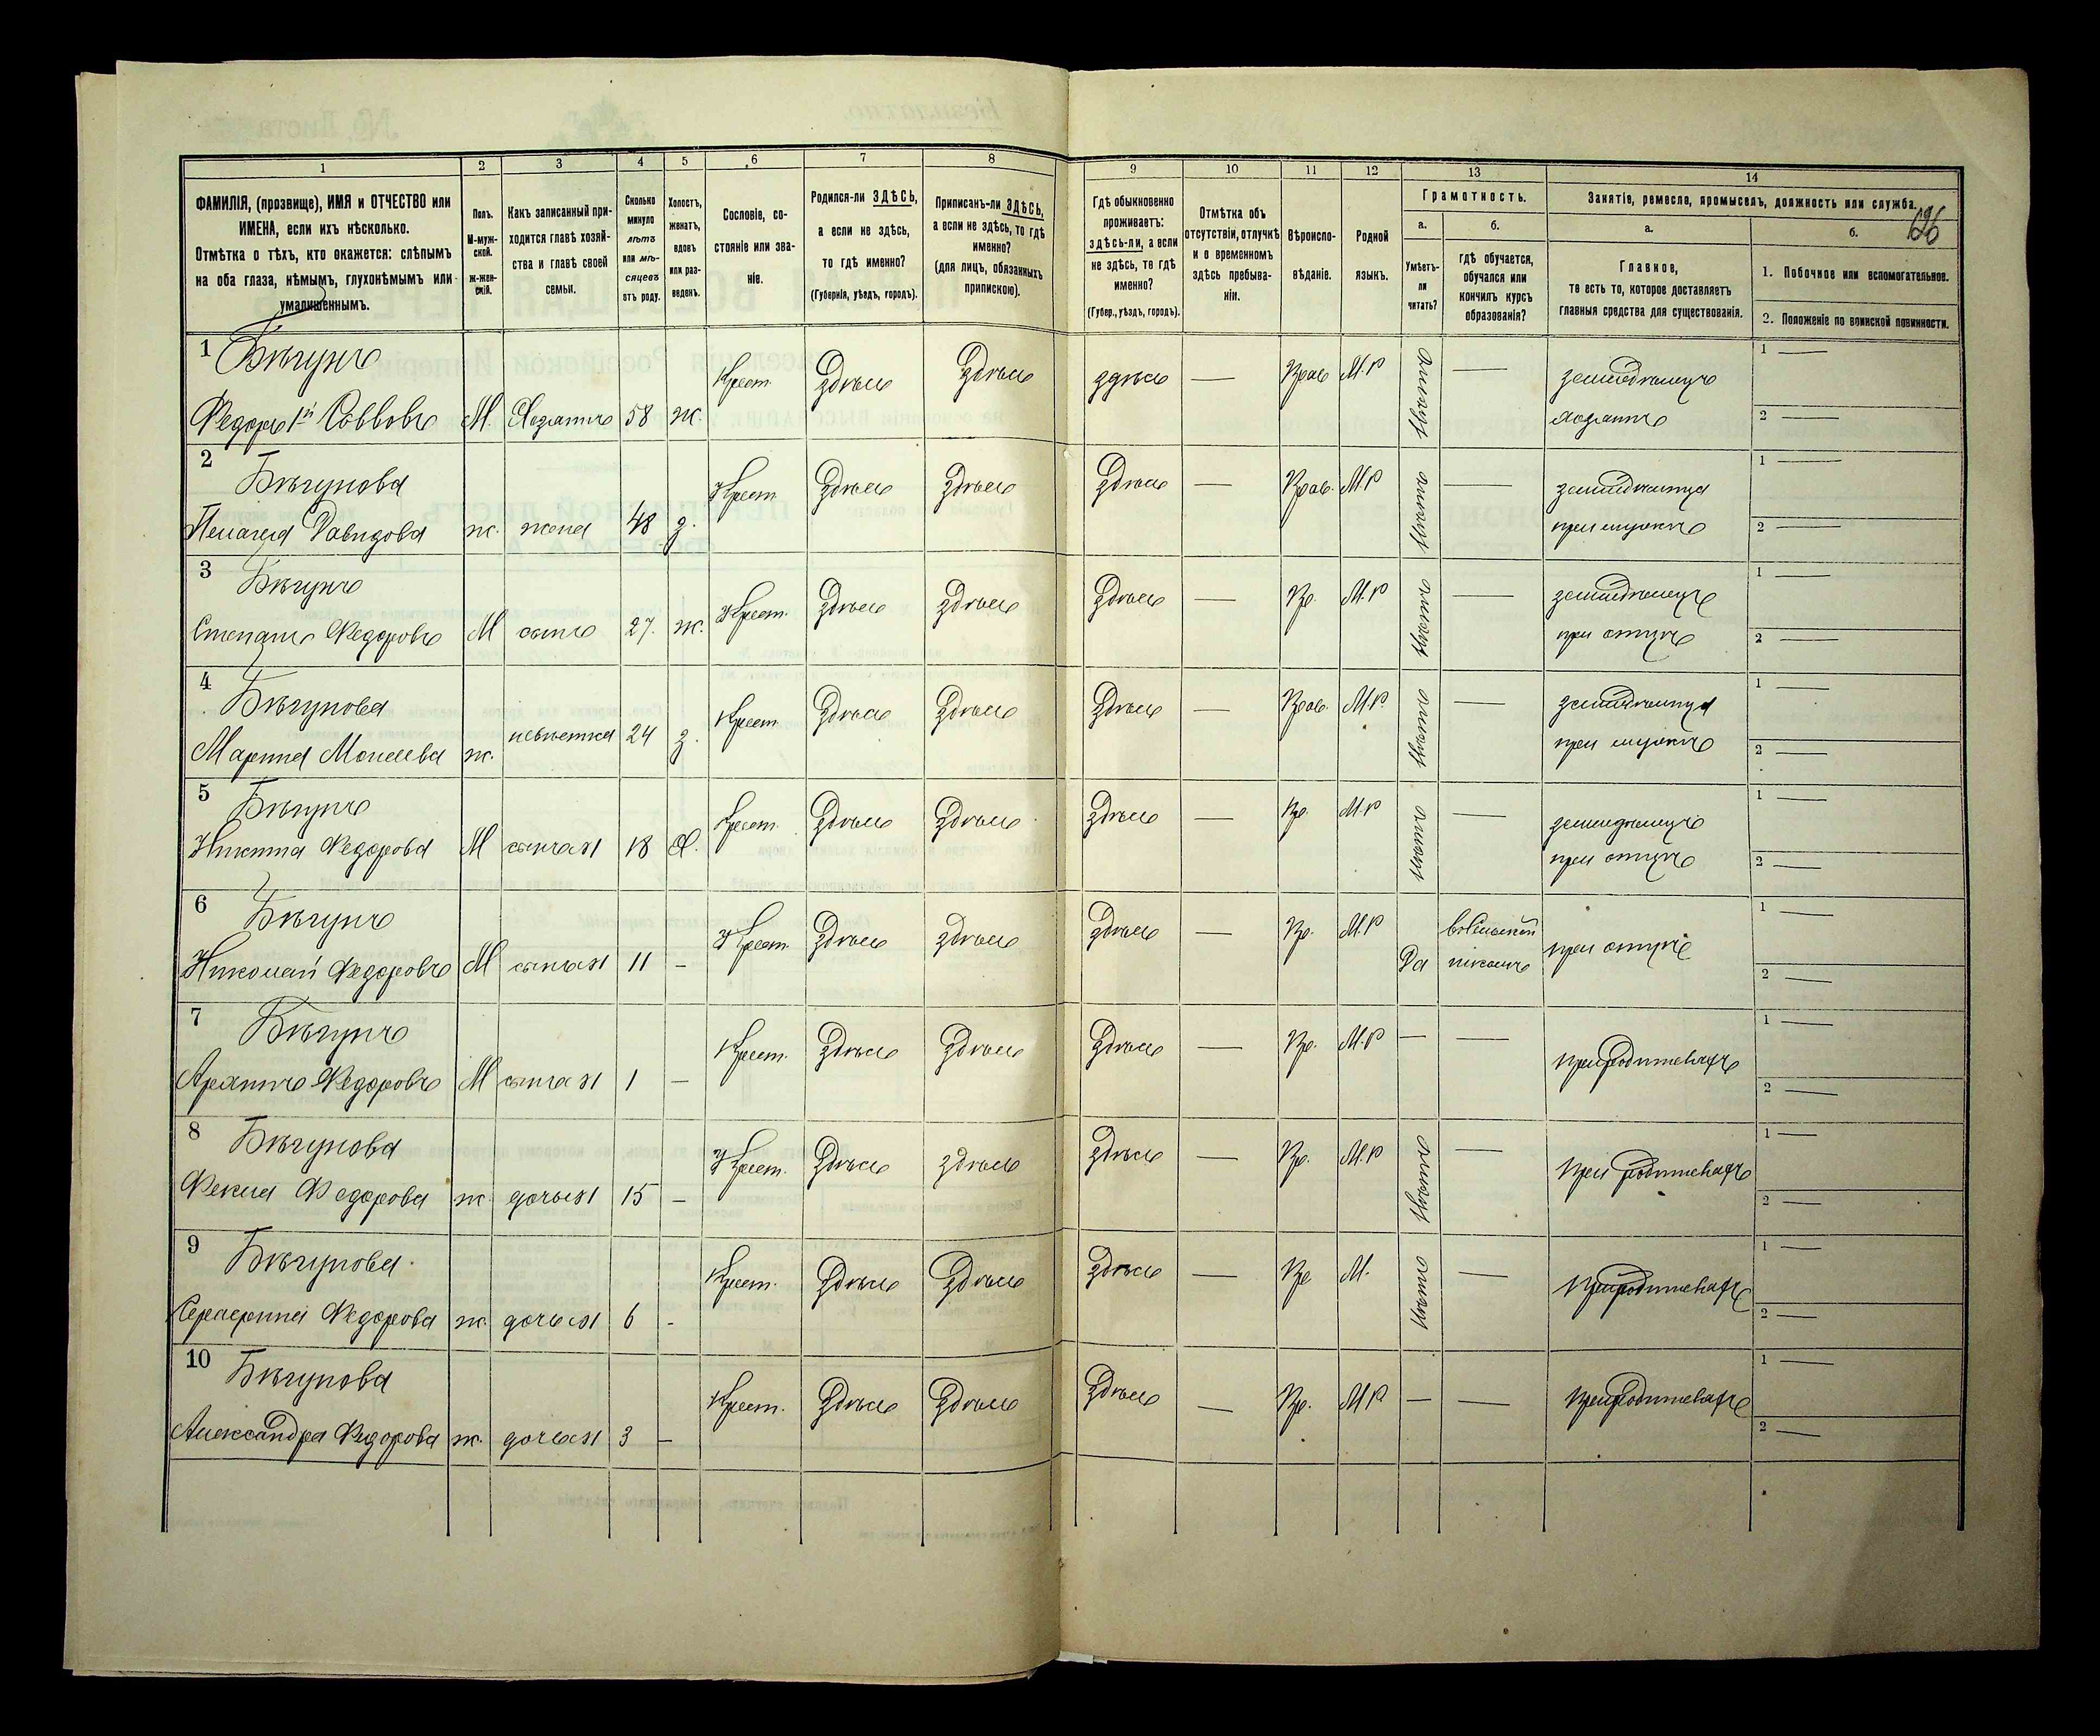 1 2 3 4 5 6 7 8 9 10 11 12 13 14
ФАМИЛІЯ, (прозвище), ИМЯ и ОТЧЕСТВО или
ИМЕНА, если ихъ нѣсколько.
Отмѣтка о тѣхъ, кто окажется: слѣпымъ
на оба глаза, нѣмымъ, глухонѣмымъ или
умалишеннымъ.
Полъ.
М-муж-
ской.
Ж-жен-
скій.
Какъ записанный при-
ходится главѣ хозяй-
ства и главѣ своей
семьи.
Сколько
минуло
лѣтъ
или мѣ-
сяцевъ
отъ роду.
Холостъ,
женатъ,
вдовъ
или раз-
веденъ.
Сословіе, со-
стояніе или зва-
ніе.
Родился-ли ЗДѢСЬ,
а если не здѣсь,
то гдѣ именно?
(Губернія, уѣздъ, городъ).
Приписанъ-ли ЗДѢСЬ,
а если не здѣсь, то гдѣ
именно?
(для лицъ, обязанныхъ
припискою).
Гдѣ обыкновенно
проживаетъ:
здѣсь-ли, а если
не здѣсь, то гдѣ
именно?
(Губер., уѣздъ, городъ).
Отмѣтка объ
отсутствіи, отлучкѣ
и о временномъ
здѣсь пребыва-
ніи.
Вѣроиспо-
вѣданіе.
Родной
языкъ.
Грамотность.
а.
Умѣетъ-
ли
читать?
б.
гдѣ обучается,
обучался или
кончилъ курсъ
образованія?
Занятіе, ремесло, промыселъ, должность или служба.
126
а.
Главное,
то есть то, которое доставляетъ
главныя средства для существованія.
б.
1. Побочное или вспомогательное.
2. Положеніе по воинской повинности.
1 Бѣгунъ Крест. Здѣсь Здѣсь здѣсь — Прав М.Р неграмот — земледѣлецъ 1 —
Федоръ 1й Саввовъ М. Хозяинъ 58 ж. хозяинъ 2 —
2 Бѣгунова Крест Здѣсь Здѣсь Здѣсь — Прав. М.Р — 1 —
Пелагея Давидова ж. жена 48 з. при мужѣ 2 —
3 Бѣгунъ Крест. Здѣсь Здѣсь Здѣсь — Пр. М.Р — земледѣлецъ 1 —
Степанъ Федоровъ М сынъ 27. ж. при отцѣ 2 —
4 Бѣгунова Крест Здѣсь Здѣсь Здѣсь — Прав. М.Р — 1 —
Марина Моисеева ж. невѣстка 24 з. при мужѣ 2 —
5 Бѣгунъ Крест. Здѣсь Здѣсь Здѣсь — Пр. М.Р — земледѣлецъ 1 —
Никита Федорова М сынъ ея 18 Х. при отцѣ 2 —
6 Бѣгунъ Крест. Здѣсь здѣсь Здѣсь — Пр. М.Р въ Сельской 1 —
Николай Федоровъ М сынъ ея 11 - Да школѣ при отцѣ 2 —
7 Бѣгунъ Крест. Здѣсь Здѣсь Здѣсь — Пр. М.Р — — при родителяхъ 1 —
Архипъ Федоровъ М сынъ ея 1 — 2 —
8 Бѣгунова Крест. Здѣсь здѣсь Здѣсь — Пр. М.Р — при родителяхъ 1 —
Фекла Федорова ж дочь ея 15 — 2 —
9 Бѣгунова Крест. Здѣсь Здѣсь Здѣсь — Пр М. — при родителяхъ 1 —
Федорова ж. дочь ея 6 - 2 —
10 Бѣгунова Крест. Здѣсь Здѣсь Здѣсь — Пр. М.Р — — при родителяхъ 1 —
Александра Федорова ж. дочь ея 3 — 2 —